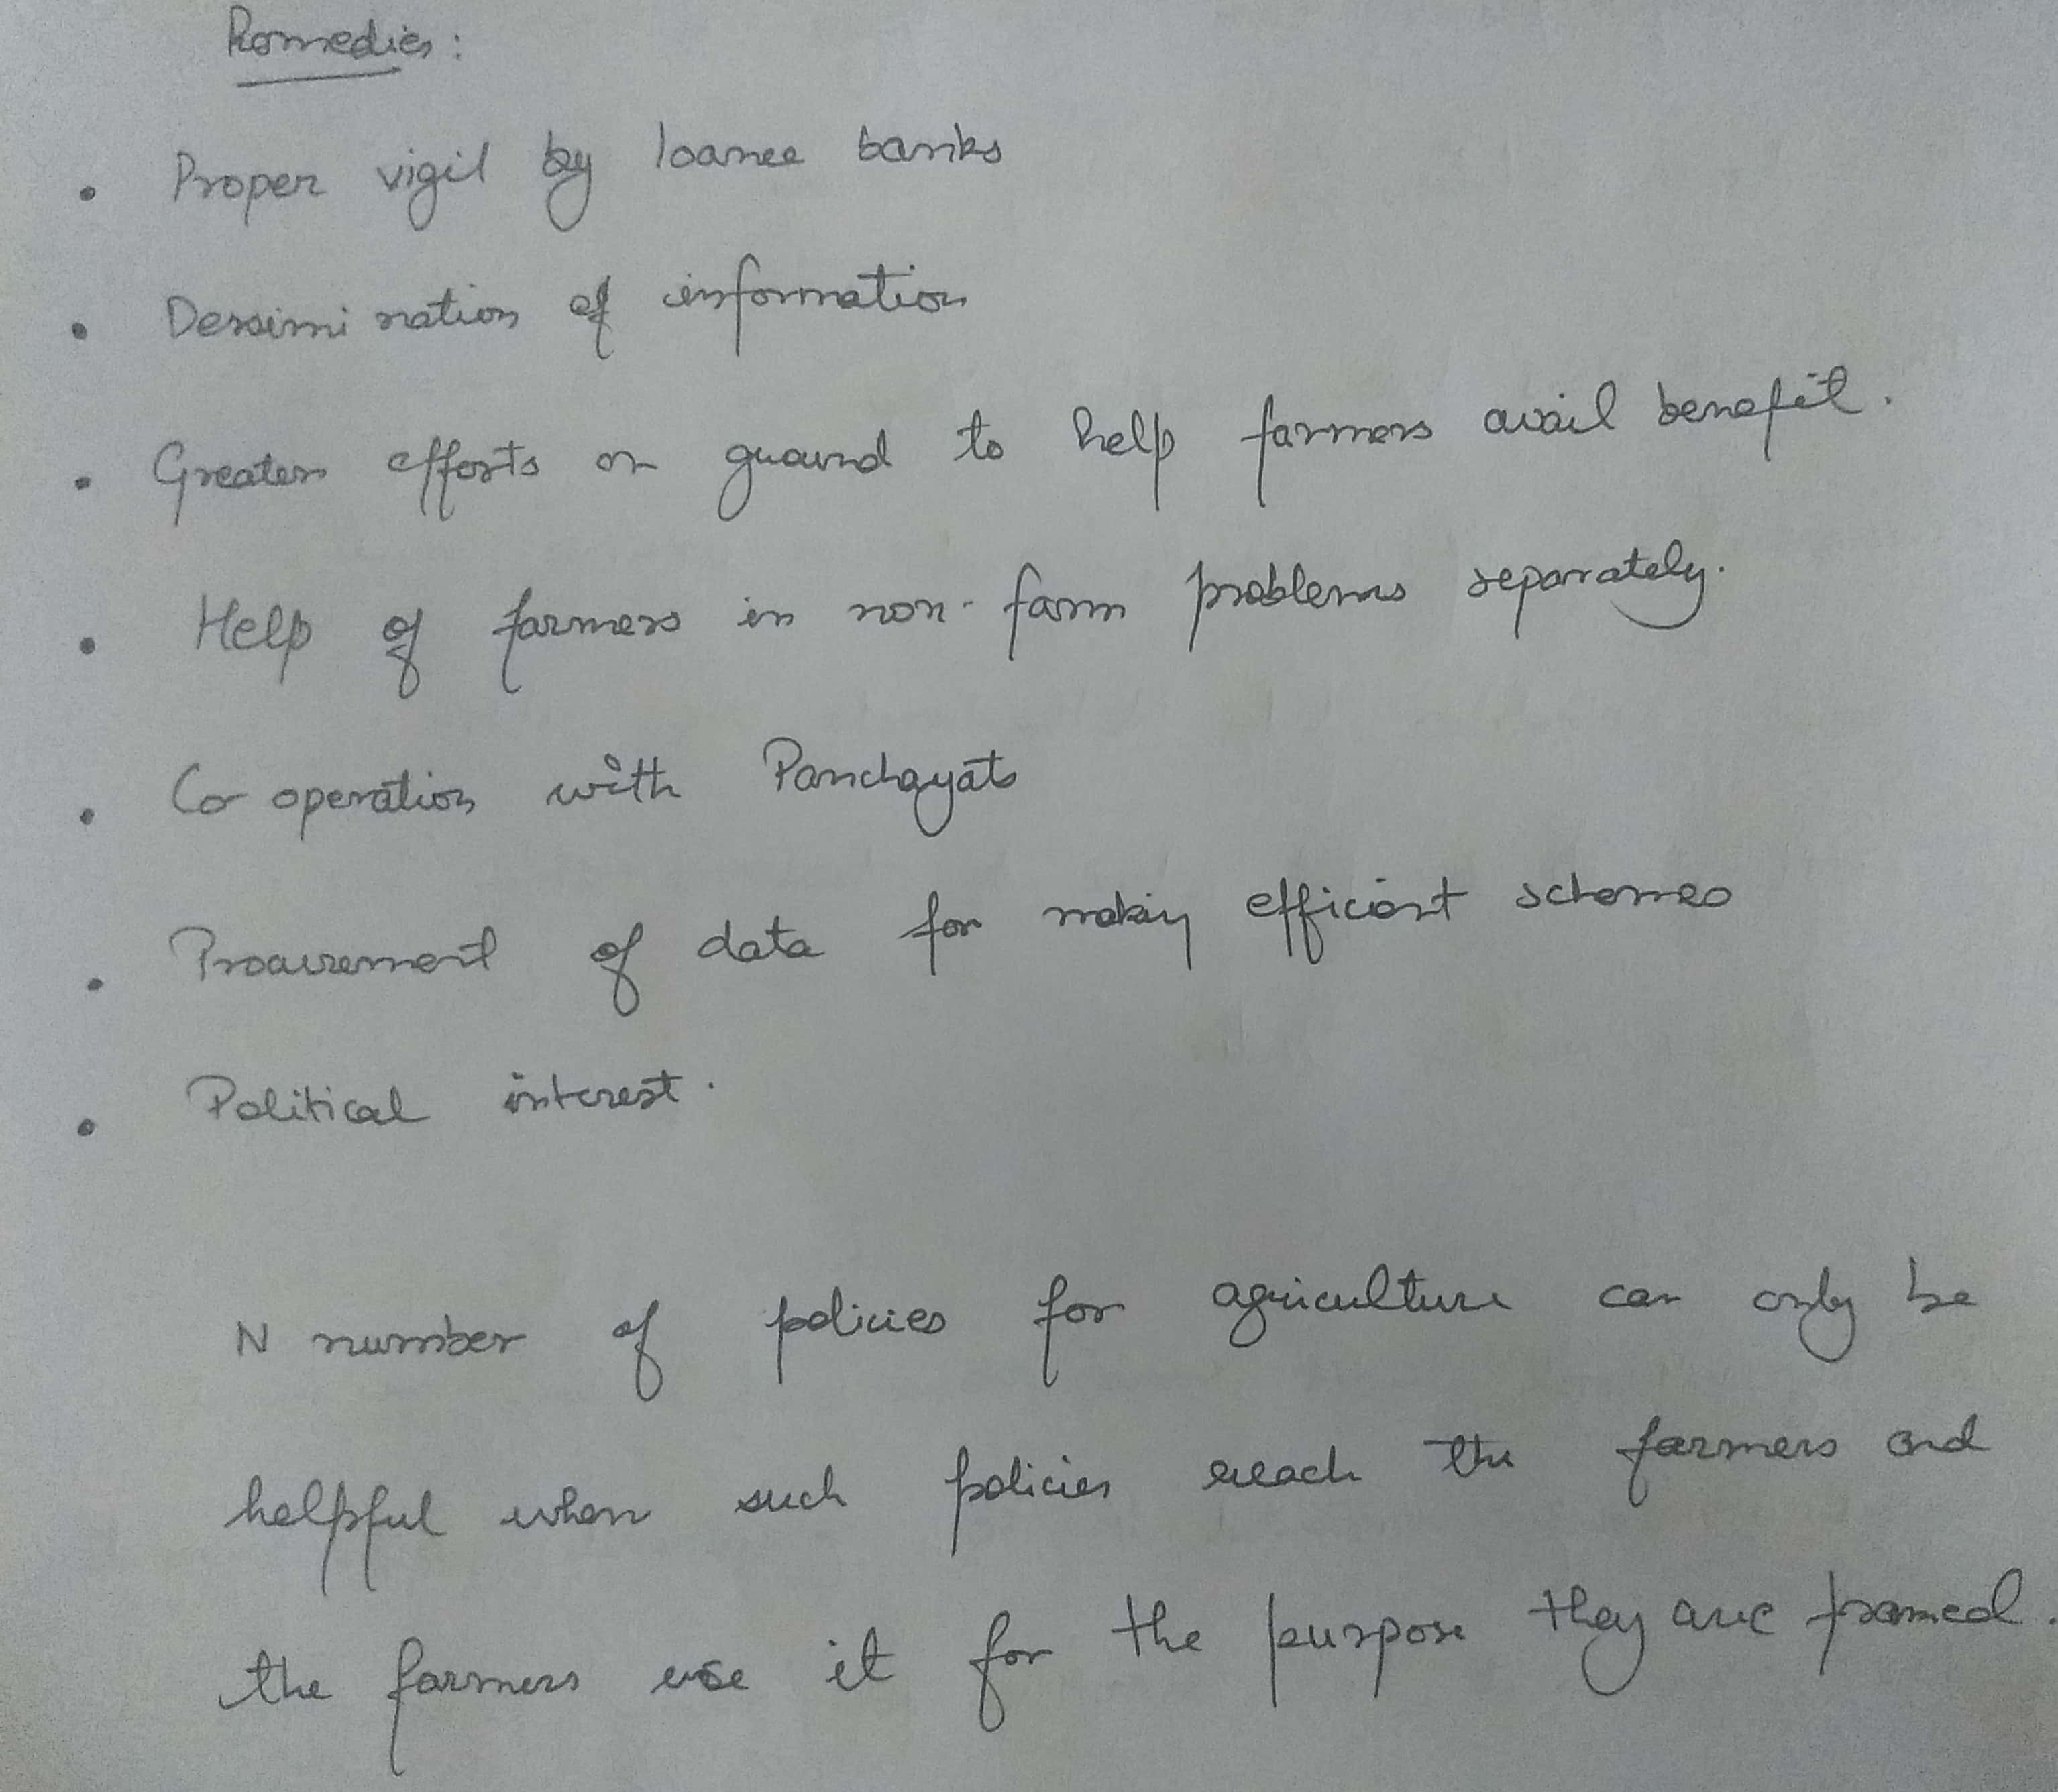 Remedies:
• Proper vigil by loanee banks
• Dessimi nation of information
• Greater efforts on ground to help farmers avail benefit.
• Help of farmers in non-farm problems separately.
• Co operation with Panchayats
• Procurement of data for making efficient schemes
• Political interest.
N number of policies for agriculture can only be
helpful when such policies reach the farmers and
the farmers use it for the purpose they are framed.